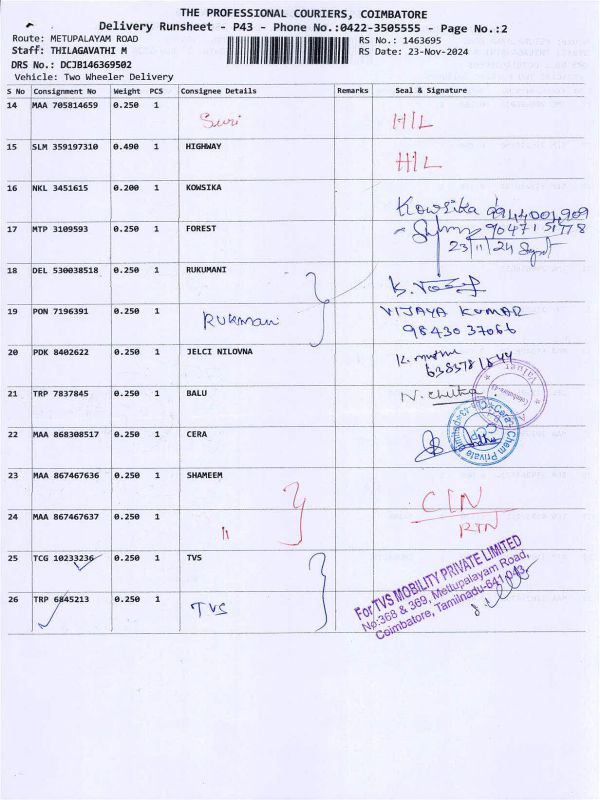 THE PROFESSIONAL COURIERS, COIMBATORE
Delivery Runsheet - P43 - Phone No.:0422-3505555 - Page No.:2
Route: METUPALAYAM ROAD RS No.: 1463695
Staff: THILAGAVATHI M RS Date: 23-Nov-2024
DRS No.: DCJB146369502
Vehicle: Two Wheeler Delivery
S No Consignment No Weight PCS Consignee Details Remarks Seal & Signature
14 MAA 705814659 0.250 1
Suri H/L
15 SLM 359197310 0.490 1 HIGHWAY
H/L
16 NKL 3451615 0.200 1 KOWSIKA
Kowsika 9944004909
17 MTP 3109593 0.250 1 FOREST
9047151778
23/11/24
18 DEL 530038518 0.250 1 RUKUMANI
19 PON 7196391 0.250 1
RUKMANI
VIJAYA KUMAR
98430 37066
20 PDK 8402622 0.250 1 JELCI NILOVNA
21 TRP 7837845 0.250 1 BALU
N. Chitra
22 MAA 868308517 0.250 1 CERA
Cera-Chem Private Limited
23 MAA 867467636 0.250 1 SHAMEEM
24 MAA 867467637 0.250 1
"
C/N
RTN
25 TCG 10233236 0.250 1 TVS
26 TRP 6845213 0.250 1
TVS
For TVS MOBILITY PRIVATE LIMITED
No:368 & 369, Mettupalayam Road,
Coimbatore, Tamilnadu-641 043.